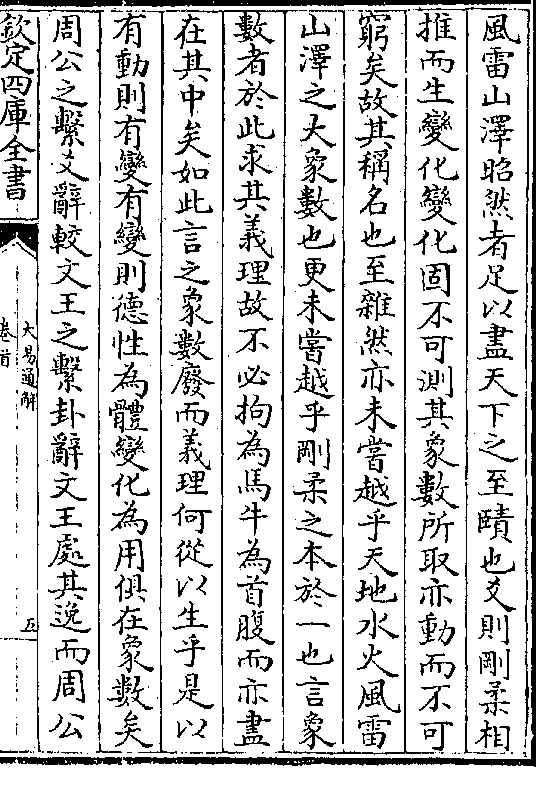 風雷山澤昭然者足以盡天下之至賾也爻則剛柔相
推而生變化變化固不可測其象數所取亦動而不可
窮矣故其稱名也至雜然亦未嘗越乎天地水火風雷
山澤之大象數也更未嘗越乎剛柔之本於一也言象
數者於此求其義理故不必拘為馬牛為首腹而亦盡
在其中矣如此言之象數廢而義理何從以生乎是以
有動則有變有變則德性為體變化為用俱在象數矣
周公之繫爻辭較文王之繫卦辭文王處其逸而周公
欽定四庫全書
大易通解
卷首
五